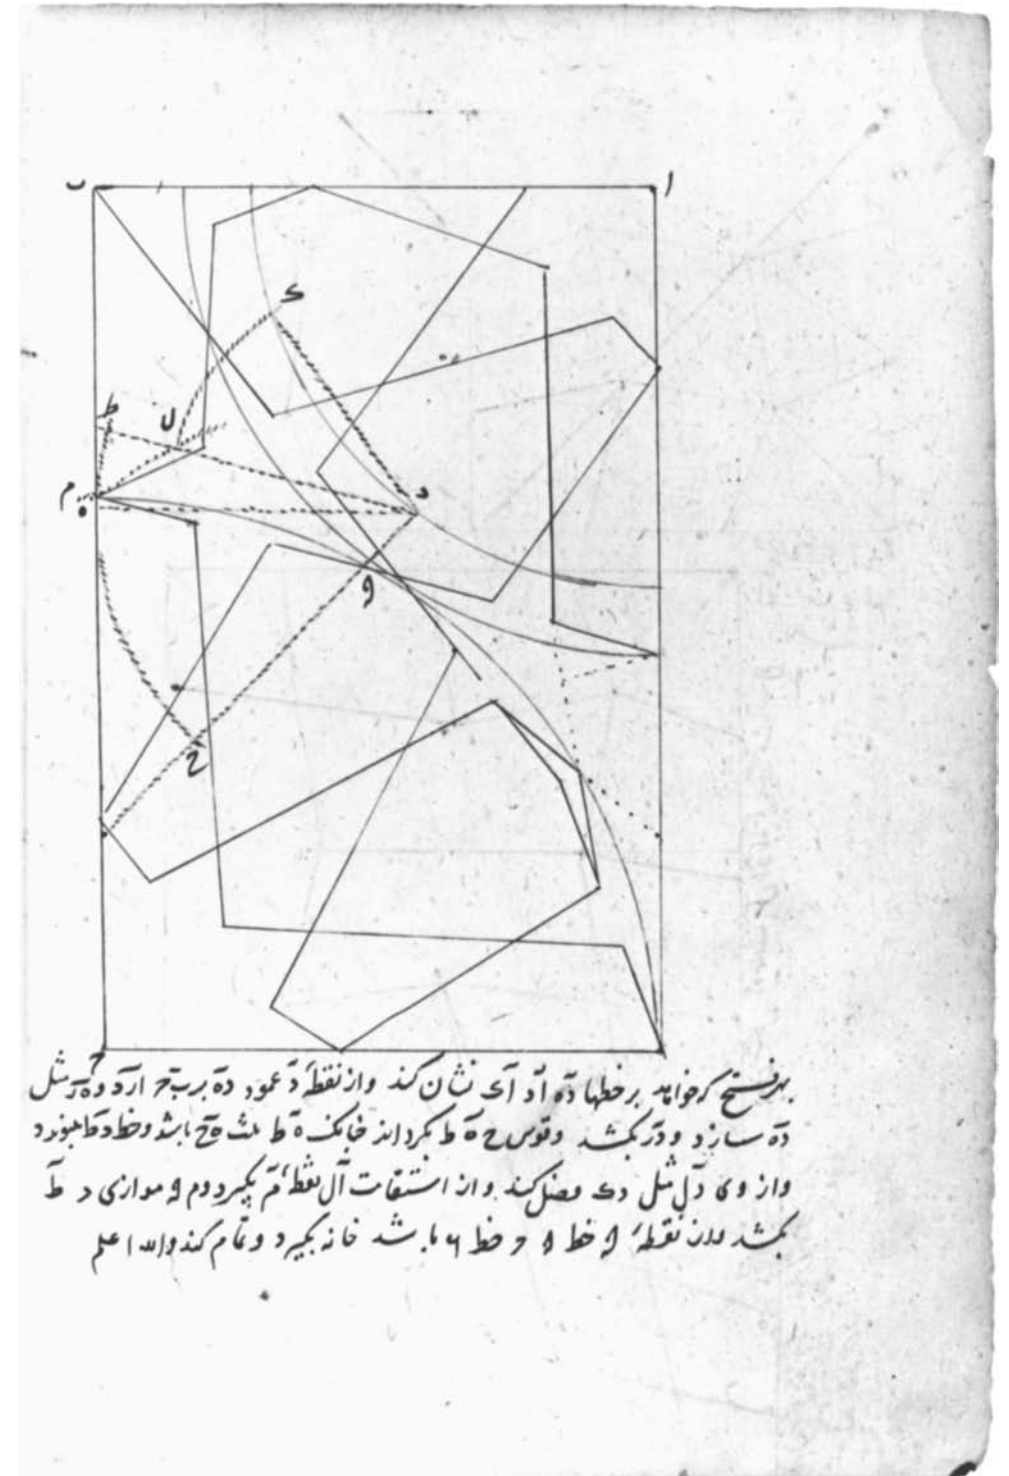 ا
ب
ی
ط
ل
م
ه
د
و
ح
بهر نسخ که خواهد بر خطها دَه آد آی نشان کند و از نقطهٔ دَ عمود دَه بر بَ‌حَ ارد و دَه رَ مثل
دَه سازد و دَرَ بکشد و قوس ح ه ط بگرداند چنانک ه ط ثلث هَ‌حَ باشد و خط د ط
و از وی دَل مثل دی فصل کند و از استقامت آل نقطهٔ مَ بگیرد و م و موازی د ط
بکشد و از نقطهٔ و خط و خانه بگیرد و تمام کند والله اعلم